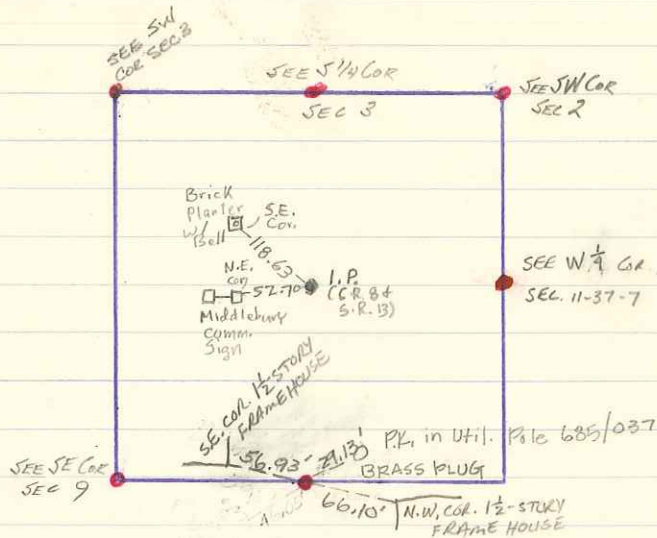 SEE SW
COR SEC 3
SEE S 1/4 COR
SEC 3
SEE SW COR
SEC 2
Brick
Planter
w/
Bell
S.E.
Cor.
118.63
N.E.
cor
52.70
I.P.
(C.R. 8 &
S.R. 13)
Middlebury
Comm.
Sign
SEE W 1/4 COR
SEC. 11-37-7
S.E. COR. 1½-STORY
FRAME HOUSE
56.93'
29.13'
P.K. in Util. Pole 685/037
BRASS PLUG
SEE SE COR
SEC 9
66.10'
N.W. COR. 1½-STORY
FRAME HOUSE